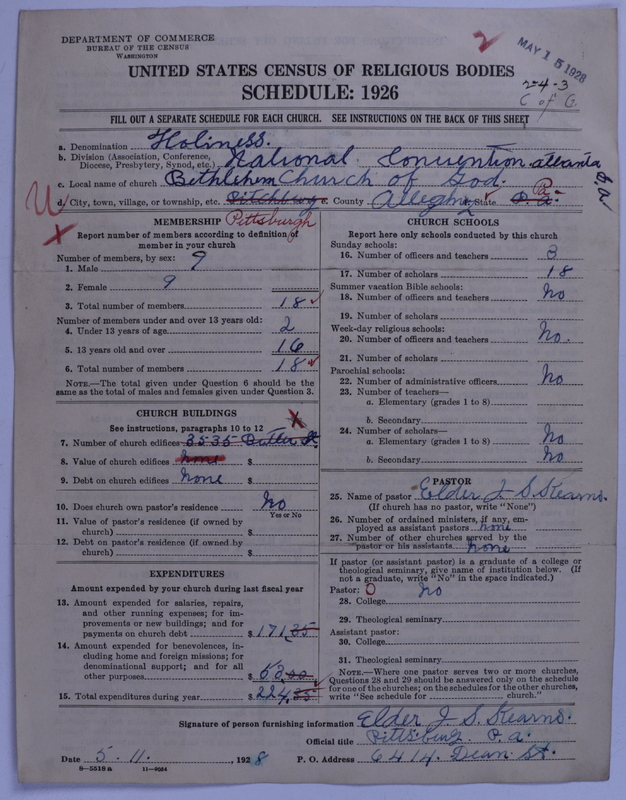 DEPARTMENT OF COMMERCE
BUREAU OF THE CENSUS
WASHINGTON
MAY 15 1928
2-4-3
C of G.
UNITED STATES CENSUS OF RELIGIOUS BODIES
SCHEDULE: 1926
FILL OUT A SEPARATE SCHEDULE FOR EACH CHURCH. SEE INSTRUCTIONS ON THE BACK OF THIS SHEET
a. Denomination Holiness.
b. Division (Association, Conference, Diocese, Presbytery, Synod, etc.) National Convention atlanta Ga
c. Local name of church Bethlehem Church of God.
d. City, town, village, or township, etc. Pitchburg e. County Allegheny f. State P. a. Pa
Pittsburgh
MEMBERSHIP
Report number of members according to definition of
member in your church
Number of members, by sex:
1. Male 9
2. Female 9
3. Total number of members 18
Number of members under and over 13 years old:
4. Under 13 years of age 2
5. 13 years old and over 16
6. Total number of members 18
NOTE.—The total given under Question 6 should be the
same as the total of males and females given under Question 3.
CHURCH BUILDINGS
See instructions, paragraphs 10 to 12
7. Number of church edifices 3535 Butler St
8. Value of church edifices none $
9. Debt on church edifices none $
10. Does church own pastor's residence No
Yes or No
11. Value of pastor's residence (if owned by
church) $
12. Debt on pastor's residence (if owned by
church) $
EXPENDITURES
Amount expended by your church during last fiscal year
13. Amount expended for salaries, repairs,
and other running expenses; for im-
provements or new buildings; and for
payments on church debt $ 171,35
14. Amount expended for benevolences, in-
cluding home and foreign missions; for
denominational support; and for all
other purposes $ 53,00
15. Total expenditures during year $ 224,35
CHURCH SCHOOLS
Report here only schools conducted by this church
Sunday schools:
16. Number of officers and teachers 3
17. Number of scholars 18
Summer vacation Bible schools:
18. Number of officers and teachers No
19. Number of scholars
Week-day religious schools:
20. Number of officers and teachers No.
21. Number of scholars
Parochial schools:
22. Number of administrative officers No
23. Number of teachers—
a. Elementary (grades 1 to 8)
b. Secondary
24. Number of scholars—
a. Elementary (grades 1 to 8) No
b. Secondary No
PASTOR
25. Name of pastor Elder J. S. Stearns.
(If church has no pastor, write "None")
26. Number of ordained ministers, if any, em-
ployed as assistant pastors none
27. Number of other churches served by the
pastor or his assistants none
If pastor (or assistant pastor) is a graduate of a college or
theological seminary, give name of institution below. (If
not a graduate, write "No" in the space indicated.)
Pastor: 0 No
28. College
29. Theological seminary
Assistant pastor:
30. College
31. Theological seminary
NOTE.—Where one pastor serves two or more churches,
Questions 28 and 29 should be answered only on the schedule
for one of the churches; on the schedules for the other churches,
write "See schedule for church."
Signature of person furnishing information Elder J. S. Stearns.
Official title Pittsburg. P.a.
Date 5. 11. , 1928 P. O. Address 6414 Dean St.
8—5518a 11—9084